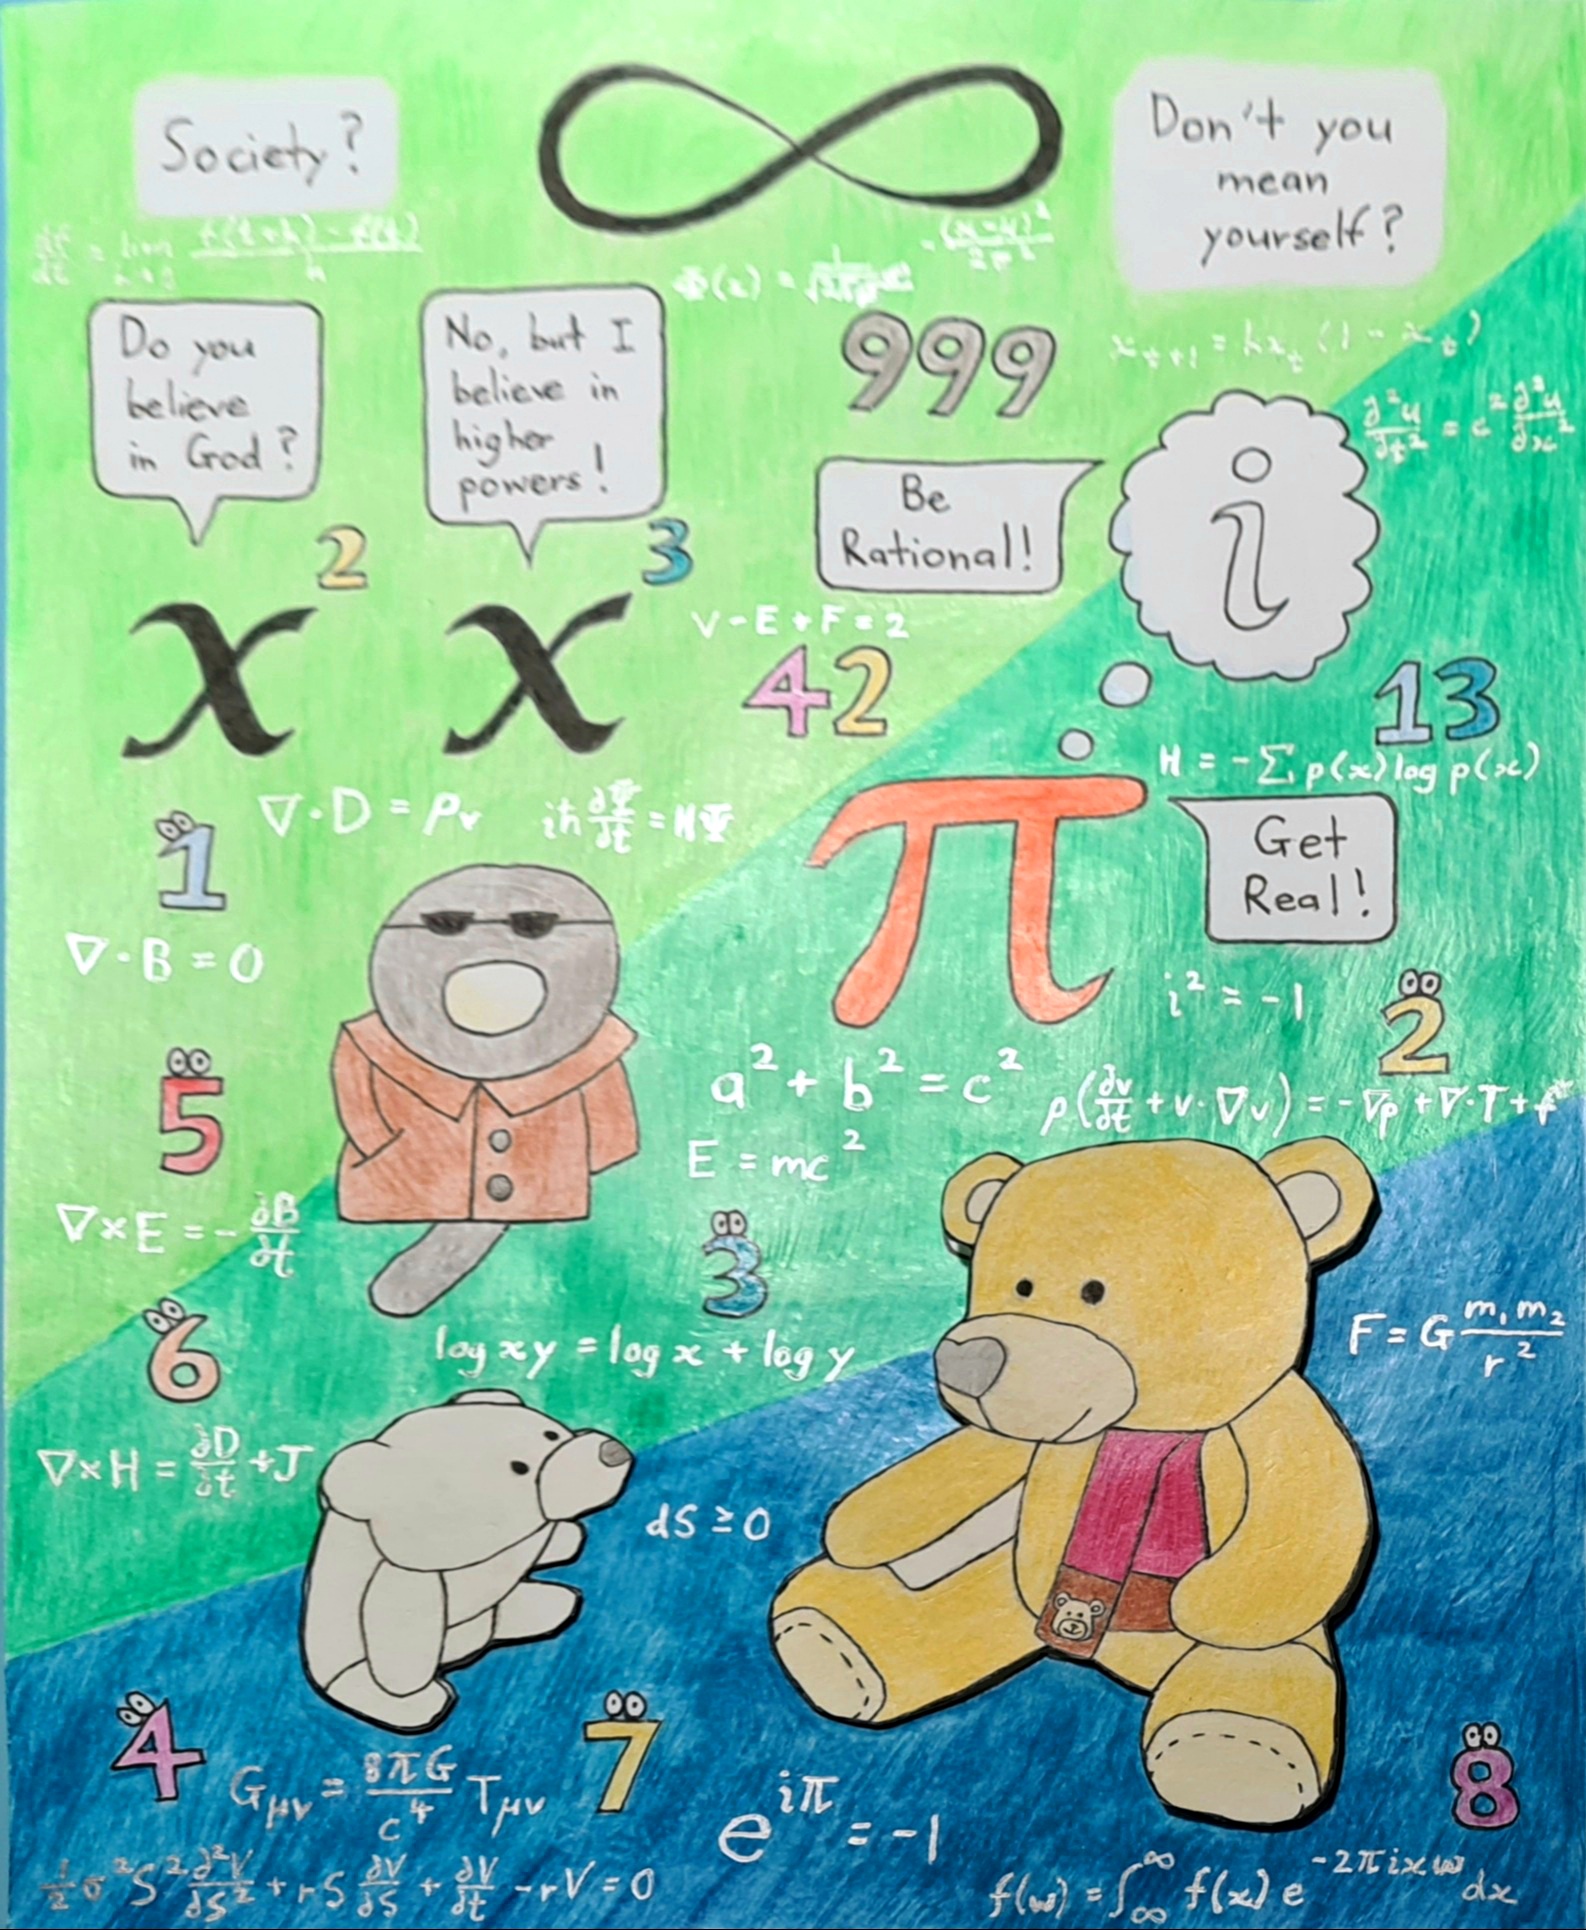 Society?
∞
Don't you
mean
yourself?
df/dt = lim h→0 (f(t+h) - f(t))/h
Φ(x) = 1/√(2πρ) e^(-(x-μ)²/2ρ²)
Do you
believe
in God?
No, but I
believe in
higher
powers!
999
x_{t+1} = kx_t (1 - x_t)
∂²u/∂t² = c² ∂²u/∂x²
i
Be
Rational!
x²
x³
V - E + F = 2
42
13
H = -∑ p(x) log p(x)
1
∇·D = ρv
iħ ∂Ψ/∂t = HΨ
π
Get
Real!
∇·B = 0
i² = -1
2
5
a² + b² = c²
ρ(∂v/∂t + v·∇v) = -∇p + ∇·T + f
E = mc²
∇×E = -∂B/∂t
3
6
F = G m₁m₂/r²
log xy = log x + log y
∇×H = ∂D/∂t + J
dS ≥ 0
4
7
8
G_μν = 8πG/c⁴ T_μν
e^{iπ} = -1
½σ²S² ∂²V/∂S² + rS ∂V/∂S + ∂V/∂t - rV = 0
f(ω) = ∫_∞^∞ f(x) e^{-2πixω} dx